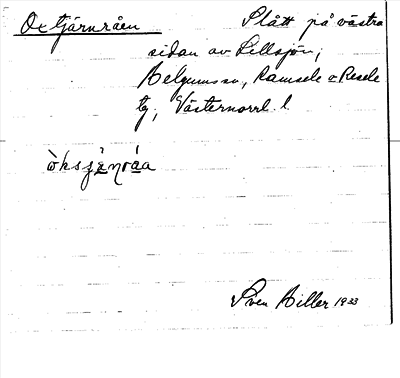 Oxtjärnråen Slått på västra
sidan av Lillsjön;
Helgums sn, Ramsele o Resele
tg, Västernorrl. l.
Sven Hiller 1933